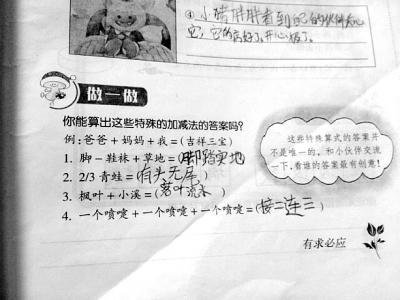 ④小猪胖胖看到自己的伙伴关心
它,它的病好了,开心极了。
做一做
你能算出这些特殊的加减法的答案吗?
例:爸爸+妈妈+我=(吉祥三宝)
1. 脚-鞋袜+草地=(脚踏实地)
2. 2/3 青蛙=(有头无尾)
3. 枫叶+小溪=(落叶流水)
4. 一个喷嚏+一个喷嚏+一个喷嚏=(接二连三)
这些特殊算式的答案并
不是唯一的,和小伙伴交流
一下,看谁的答案最有创意!
有求必应